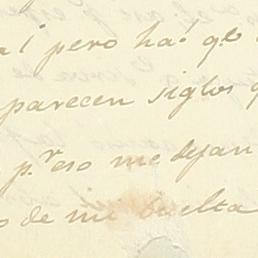 pero ha! q.e
parecen siglos q
p.r eso me dejan
o de mi buelta